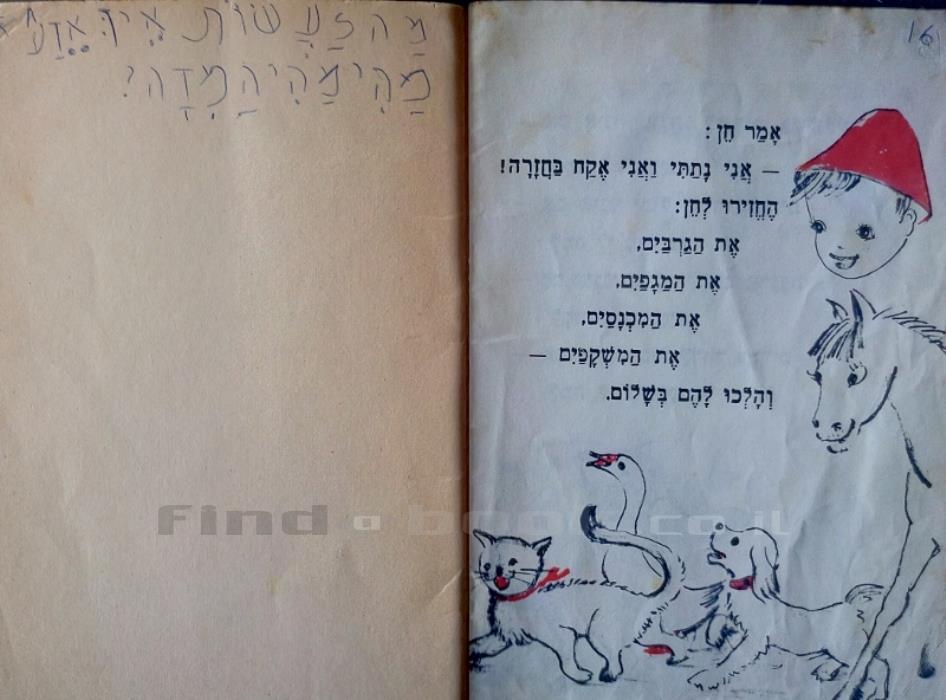 מַה זַעֲשׂוֹת אֵיךְ אֵדַע
מַהִי מַהִי הַמִדָה?
16
אָמַר חֵן:
— אֲנִי נָתַתִּי וַאֲנִי אֶקַּח בַּחֲזָרָה!
הֶחֱזִירוּ לְחֵן:
אֶת הַגַּרְבַּיִם,
אֶת הַמַּגָּפַיִם,
אֶת הַמִּכְנָסַיִם,
אֶת הַמִּשְׁקָפַיִם —
וְהָלְכוּ לָהֶם בְּשָׁלוֹם.
Find a book.co.il